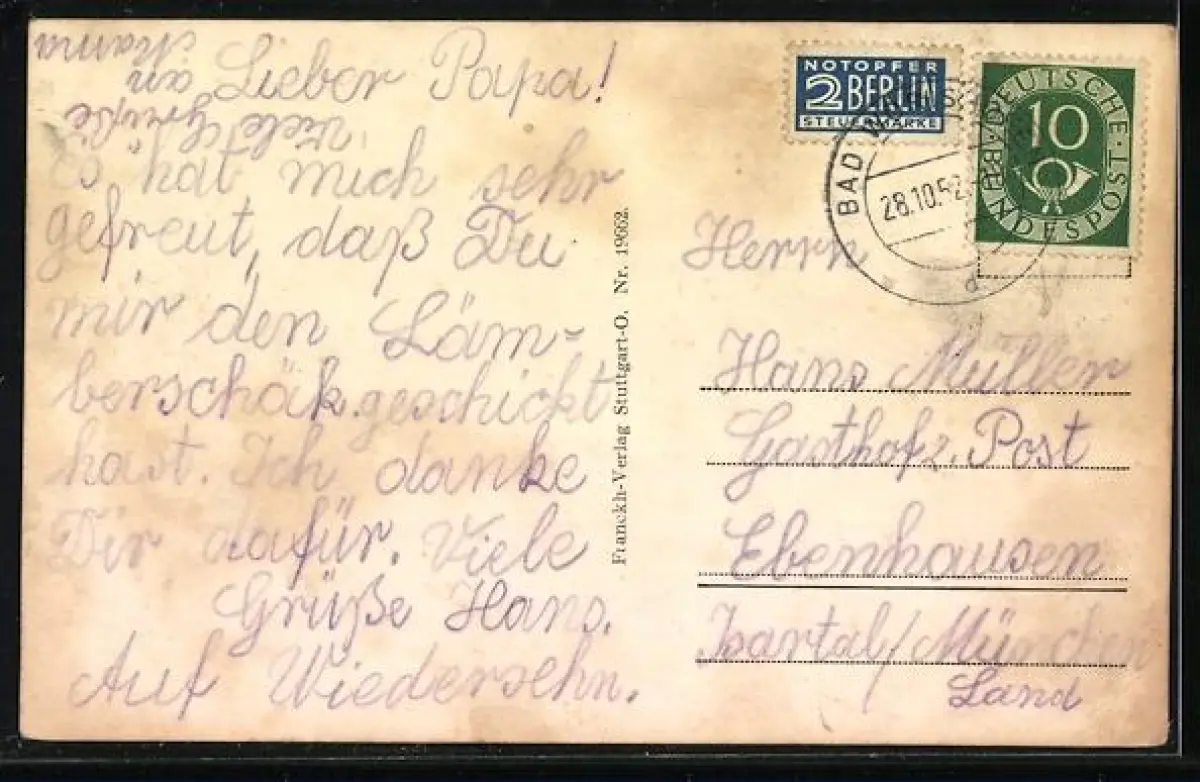 Lieber Papa!
Es hat mich sehr
gefreut, daß Du
mir den Läm-
berschäk geschickt
hast. Ich danke
Dir dafür. Viele
Grüße Hans.
Auf Wiedersehn.
Viele Grüße
an
Mama
Franckh-Verlag Stuttgart-O. Nr. 19662.
NOTOPFER
2 BERLIN
STEUERMARKE
DEUTSCHE
BUNDESPOST
10
BAD
28.10.52
d
Herrn
Hans Müller
Gasthof z. Post
Ebenhausen
Isartal/München
Land